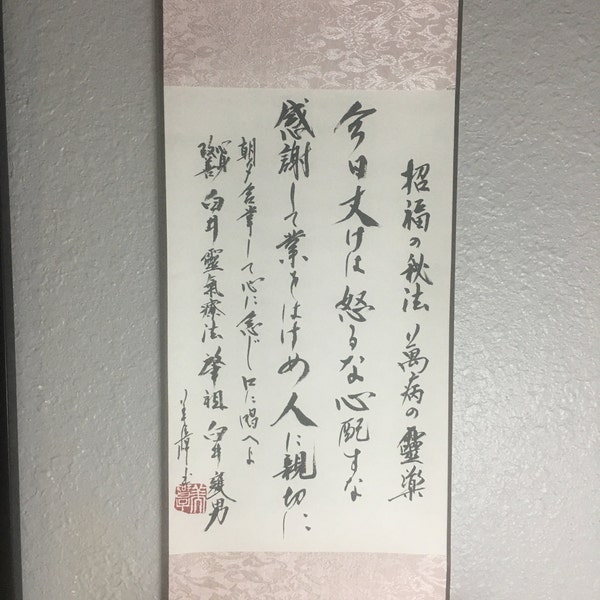 招福の秘法 萬病の靈薬
今日丈けは 怒るな 心配すな
感謝して 業をはけめ 人に親切に
朝夕合掌して心に念じ口に唱へよ
心身改善 臼井靈氣療法 肇祖 臼井甕男